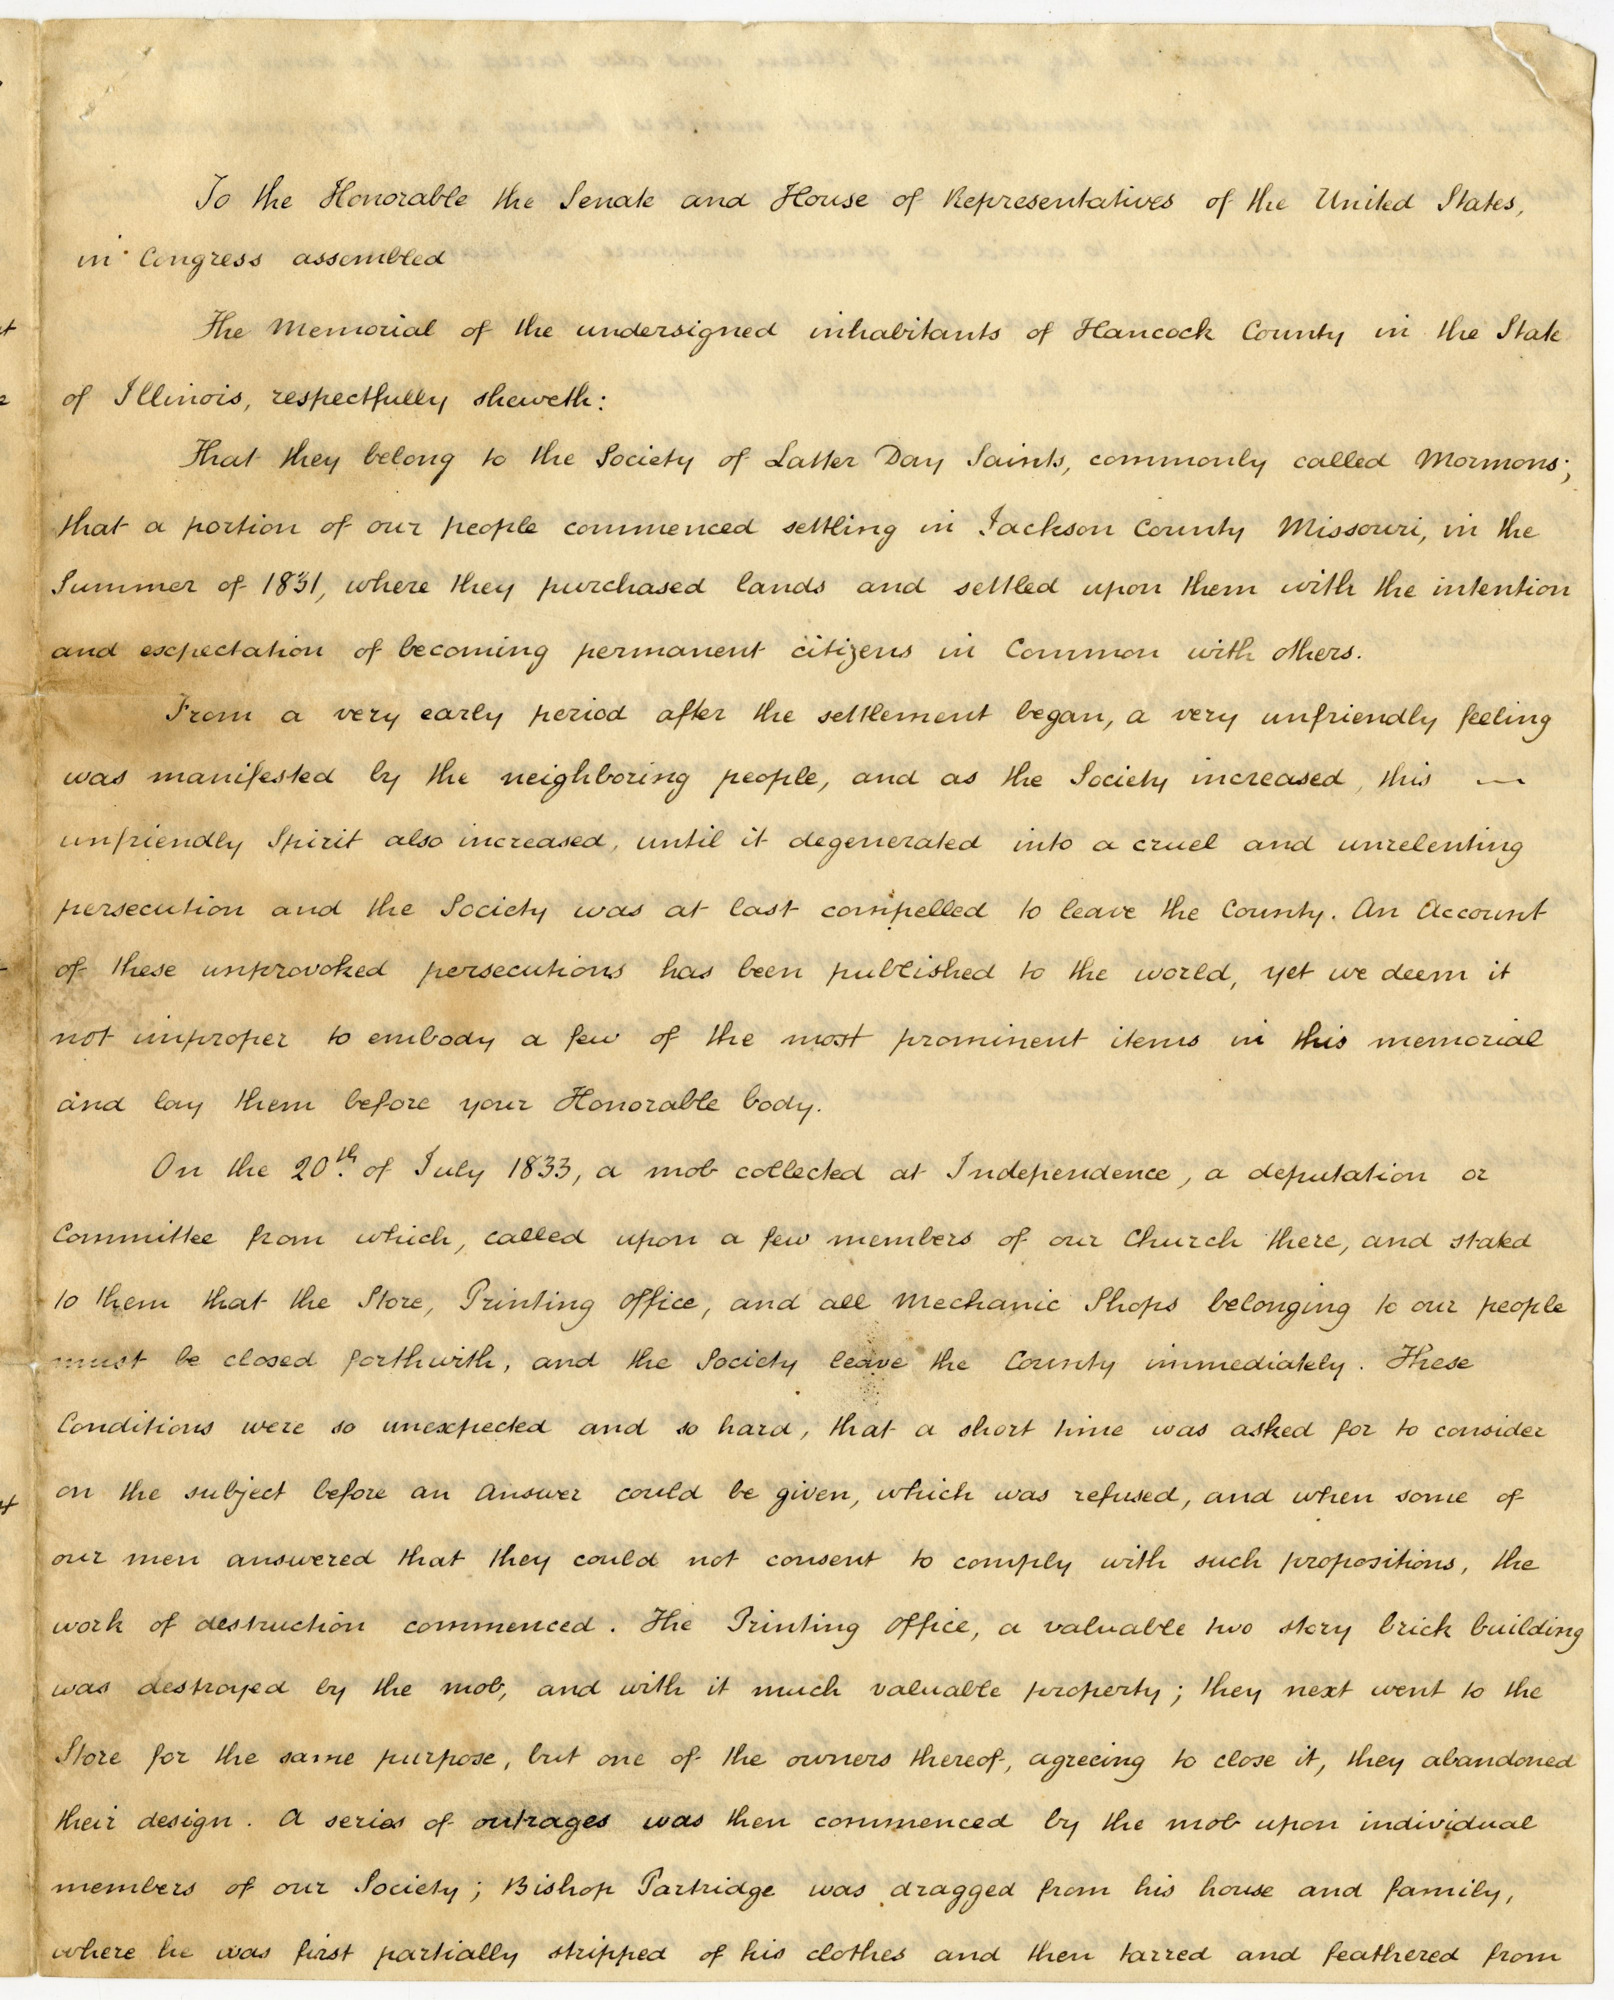 To the Honorable the Senate and House of Representatives of the United States,
in Congress assembled
The Memorial of the undersigned inhabitants of Hancock County in the State
of Illinois, respectfully sheweth:
That they belong to the Society of Latter Day Saints, commonly called Mormons;
that a portion of our people commenced settling in Jackson County Missouri, in the
Summer of 1831, where they purchased lands and settled upon them with the intention
and expectation of becoming permanent citizens in Common with others.
From a very early period after the settlement began, a very unfriendly feeling
was manifested by the neighboring people, and as the Society increased, this —
unfriendly Spirit also increased, until it degenerated into a cruel and unrelenting
persecution and the Society was at last compelled to leave the County. An Account
of these unprovoked persecutions has been published to the world, yet we deem it
not improper to embody a few of the most prominent items in this memorial
and lay them before your Honorable body.
On the 20th. of July 1833, a mob collected at Independence, a deputation or
Committee from which, called upon a few members of our Church there, and stated
to them that the Store, Printing office, and all Mechanic Shops belonging to our people
must be closed forthwith, and the Society leave the County immediately. These
Conditions were so unexpected and so hard, that a short time was asked for to consider
on the subject before an Answer could be given, which was refused, and when some of
our men answered that they could not consent to comply with such propositions, the
work of destruction commenced. The Printing office, a valuable two story brick building
was destroyed by the mob, and with it much valuable property; they next went to the
Store for the same purpose, but one of the owners thereof, agreeing to close it, they abandoned
their design. A series of outrages was then commenced by the mob upon individual
members of our Society; Bishop Partridge was dragged from his house and family,
where he was first partially stripped of his clothes and then tarred and feathered from